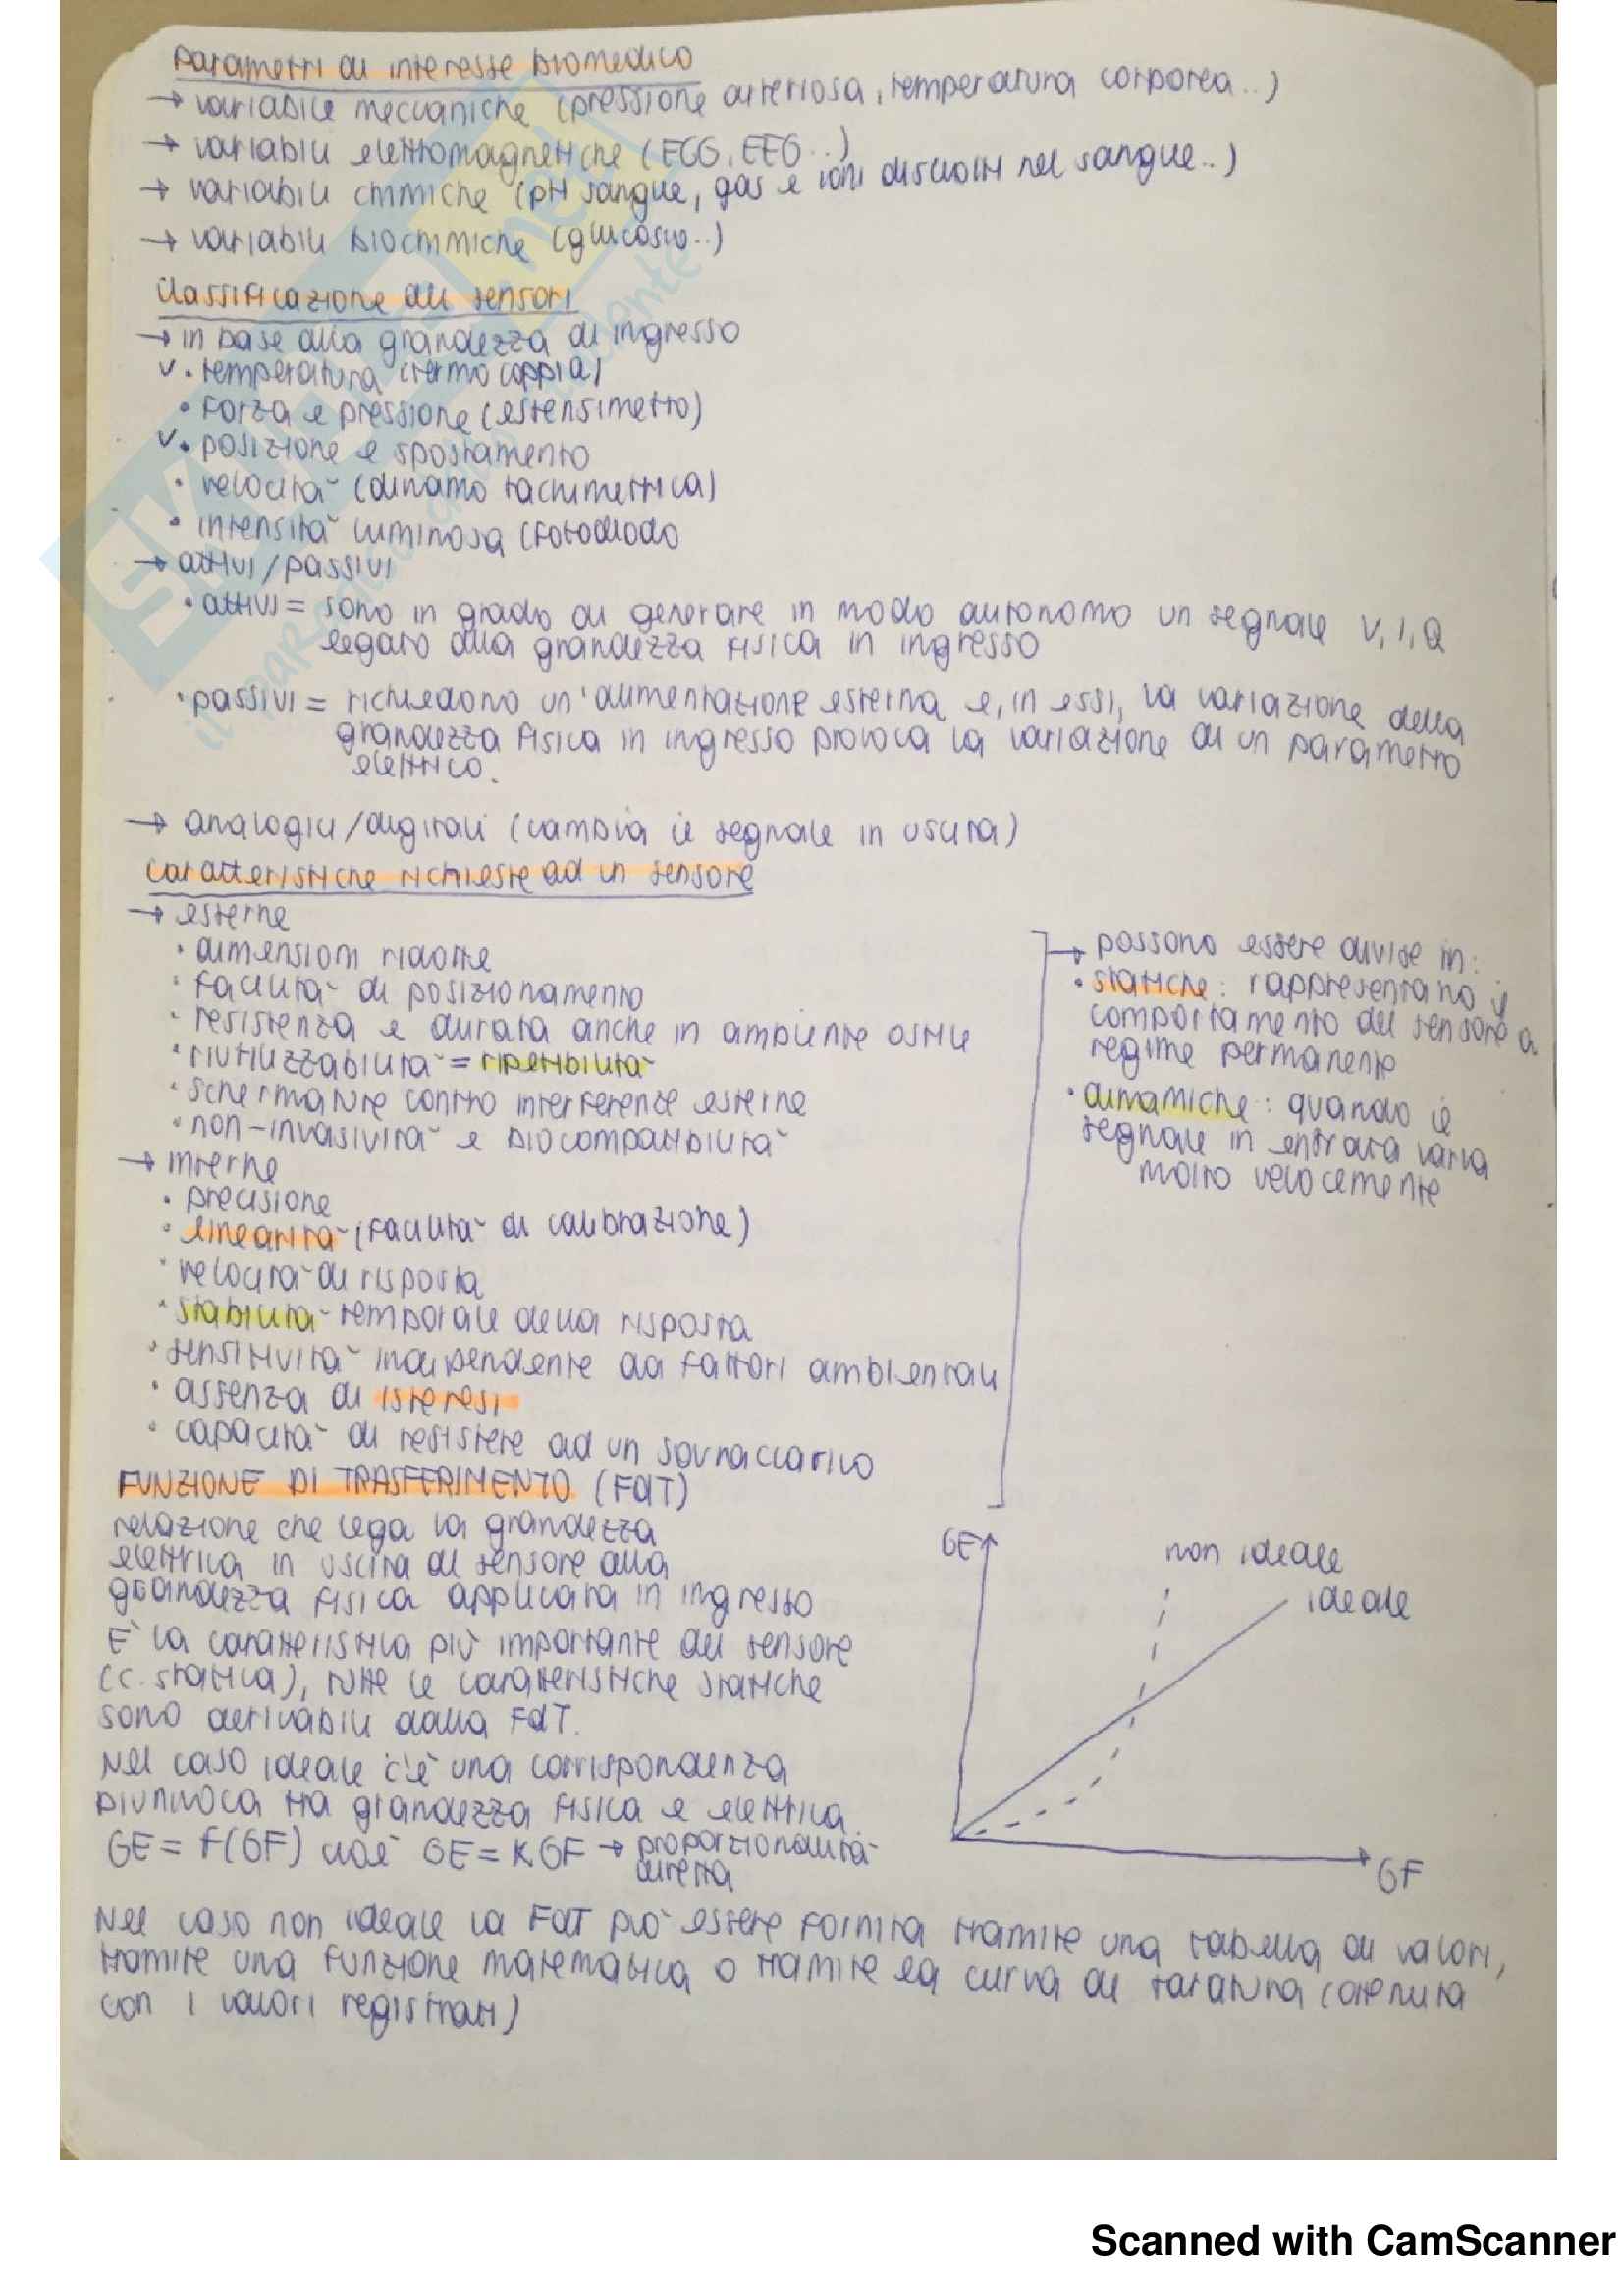 Parametri di interesse biomedico
→ variabili meccaniche (pressione arteriosa, temperatura corporea..)
→ variabili elettromagnetiche (ECG, EEG..)
→ variabili chimiche (pH sangue, gas e ioni disciolti nel sangue..)
→ variabili biochimiche (glucosio..)
Classificazione dei sensori
→ in base alla grandezza di ingresso
v • temperatura (termocoppia)
• forza e pressione (estensimetro)
v • posizione e spostamento
• velocità (dinamo tachimetrica)
• intensità luminosa (fotodiodo
→ attivi/passivi
• attivi = sono in grado di generare in modo autonomo un segnale V, I, Q
legato alla grandezza fisica in ingresso
• passivi = richiedono un'alimentazione esterna e, in essi, la variazione della
grandezza fisica in ingresso provoca la variazione di un parametro
elettrico.
→ analogici/digitali (cambia il segnale in uscita)
caratteristiche richieste ad un sensore
→ esterne
• dimensioni ridotte
• facilità di posizionamento
• resistenza e durata anche in ambiente ostile
• riutilizzabilità = ripetibilità
• schermature contro interferenze esterne
• non-invasività e biocompatibilità
→ interne
• precisione
• linearità (facilità di calibrazione)
• velocità di risposta
• stabilità temporale della risposta
• sensitività indipendente da fattori ambientali
• assenza di isteresi
• capacità di resistere ad un sovraccarico
→ possono essere divise in:
• statiche: rappresentano il
comportamento del sensore a
regime permanente
• dinamiche: quando il
segnale in entrata varia
molto velocemente
FUNZIONE DI TRASFERIMENTO (FdT)
relazione che lega la grandezza
elettrica in uscita al sensore alla
grandezza fisica applicata in ingresso
E' la caratteristica più importante del sensore
(c. statica), tutte le caratteristiche statiche
sono derivabili dalla FdT.
Nel caso ideale c'è una corrispondenza
biunivoca tra grandezza fisica e elettrica.
GE = f(GF) cioè GE = K.GF → proporzionalità
diretta
GE
non ideale
ideale
GF
Nel caso non ideale la FdT può essere fornita tramite una tabella di valori,
tramite una funzione matematica o tramite la curva di taratura (ottenuta
con i valori registrati)
Scanned with CamScanner